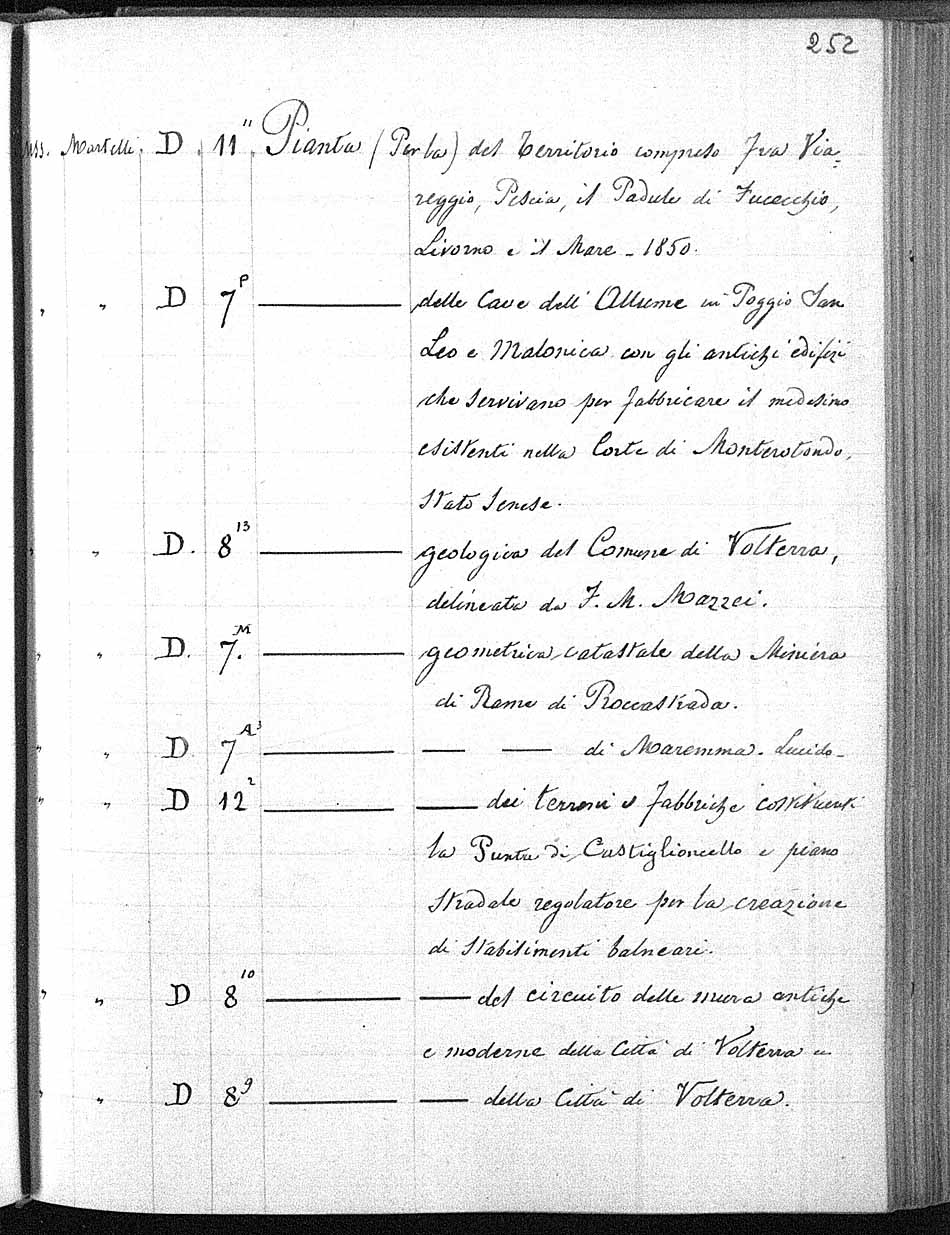 252
Mss. Martelli. D. 11 " Pianta (Per la) del Territorio compreso fra Via=
reggio, Pescia, il Padule di Fucecchio,
Livorno e il Mare - 1850.
" " D 7 P ——— delle Cave dell'Allume in Poggio San
Leo e Malonica con gli antichi edifizi
che servivano per fabbricare il medesimo
esistenti nella Corte di Monterotondo,
Stato Senese.
" " D. 8 13 ——— geologica del Comune di Volterra,
delineata da F. M. Mazzei.
" " D. 7. M ——— geometrica catastale della Miniera
di Rame di Roccastrada.
" " D. 7 A³ ——— — — di Maremma. Lucido -
" " D 12 2 ——— — dei terreni e fabbriche costituenti
la Punta di Castiglioncello e piano
stradale regolatore per la creazione
di stabilimenti balneari.
" " D 8 10 ——— — del circuito delle mura antiche
e moderne della Città di Volterra
" " D 8 9 ——— — della Città di Volterra.